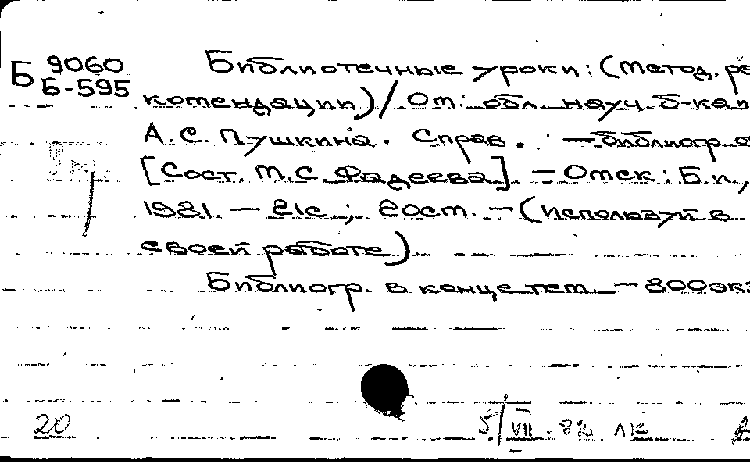 Б 9060
Б-595
Библиотечные уроки: (Метод. ре
комендации) / Ом. обл. науч. б-ка и
А.С. Пушкина. Справ. - библиогр. о
[Сост. М.С. Фадеева]. - Омск: Б.и.,
1981. - 21с.; 20см. - (Используй в
своей работе)
Библиогр. в конце тем. - 800 экз
20 5/VII. 82 ЛК